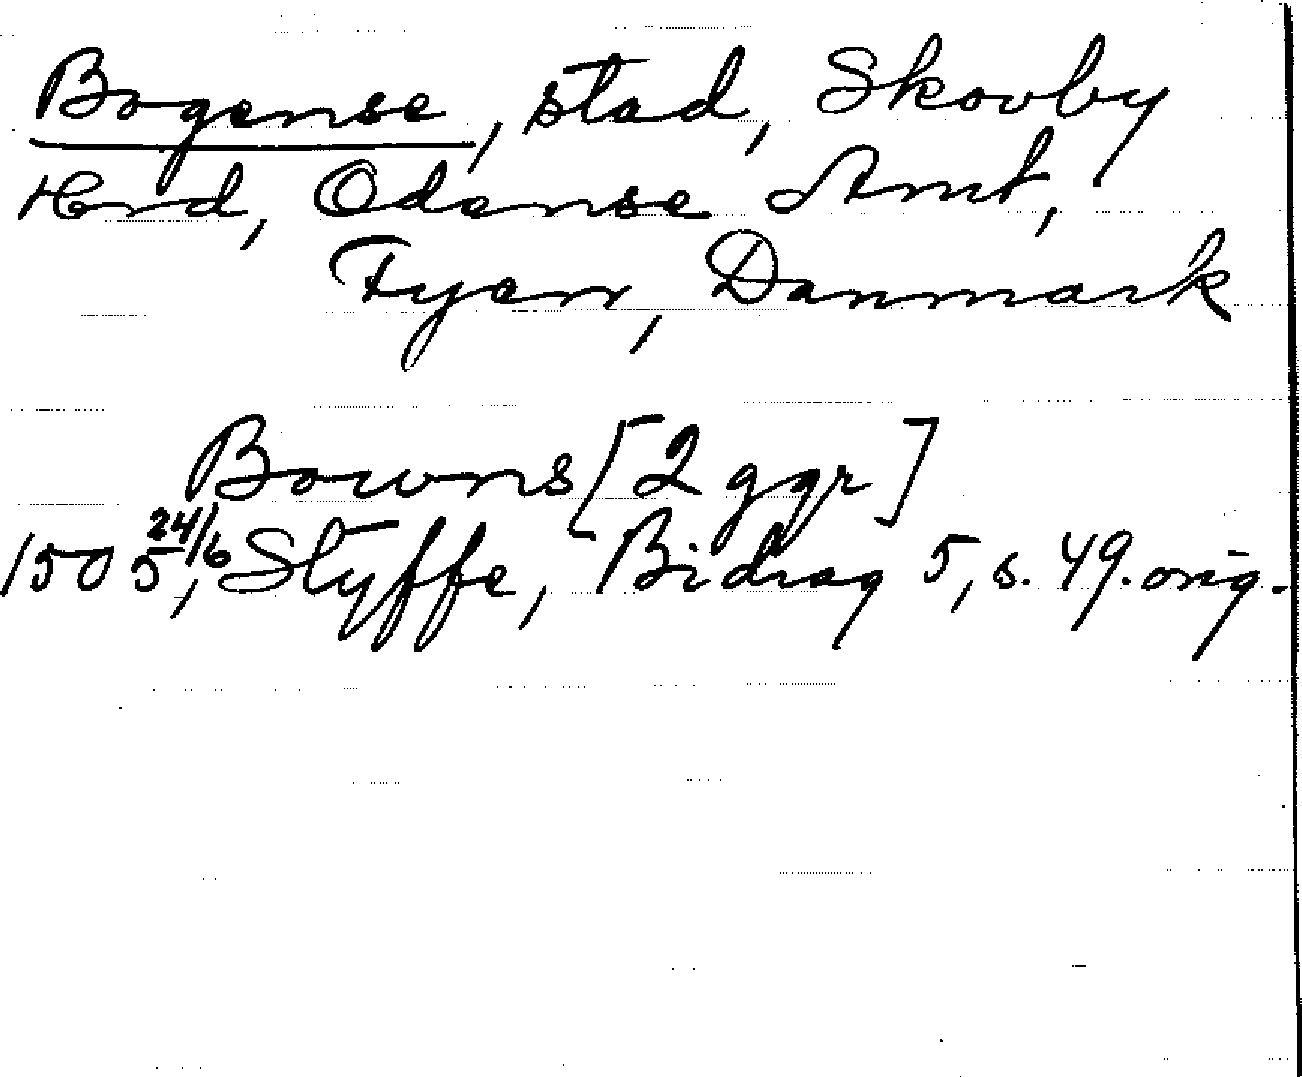 Bogense, stad, Skovby
Hrd, Odense Amt,
Fyen, Danmark
Bowns [2 ggr]
1505 24/6, Styffe, Bidrag 5, s. 49. orig.